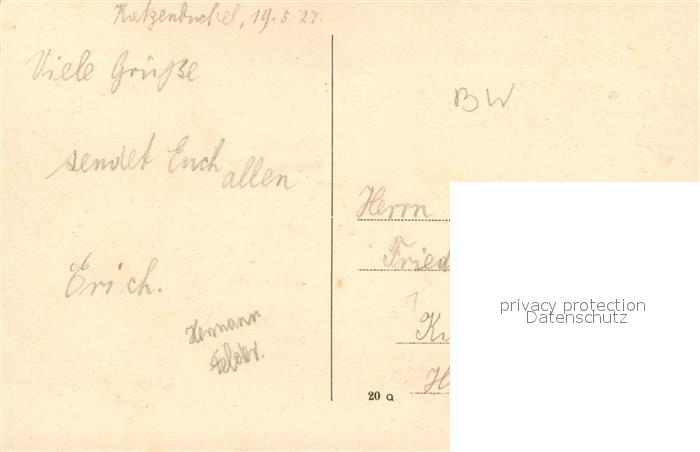 Katzenbuckel, 19.5.27.
Viele Grüße
sendet Euch
allen
Erich.
Hermann
BW
Herrn
Fried
H
20 a
privacy protection
Datenschutz